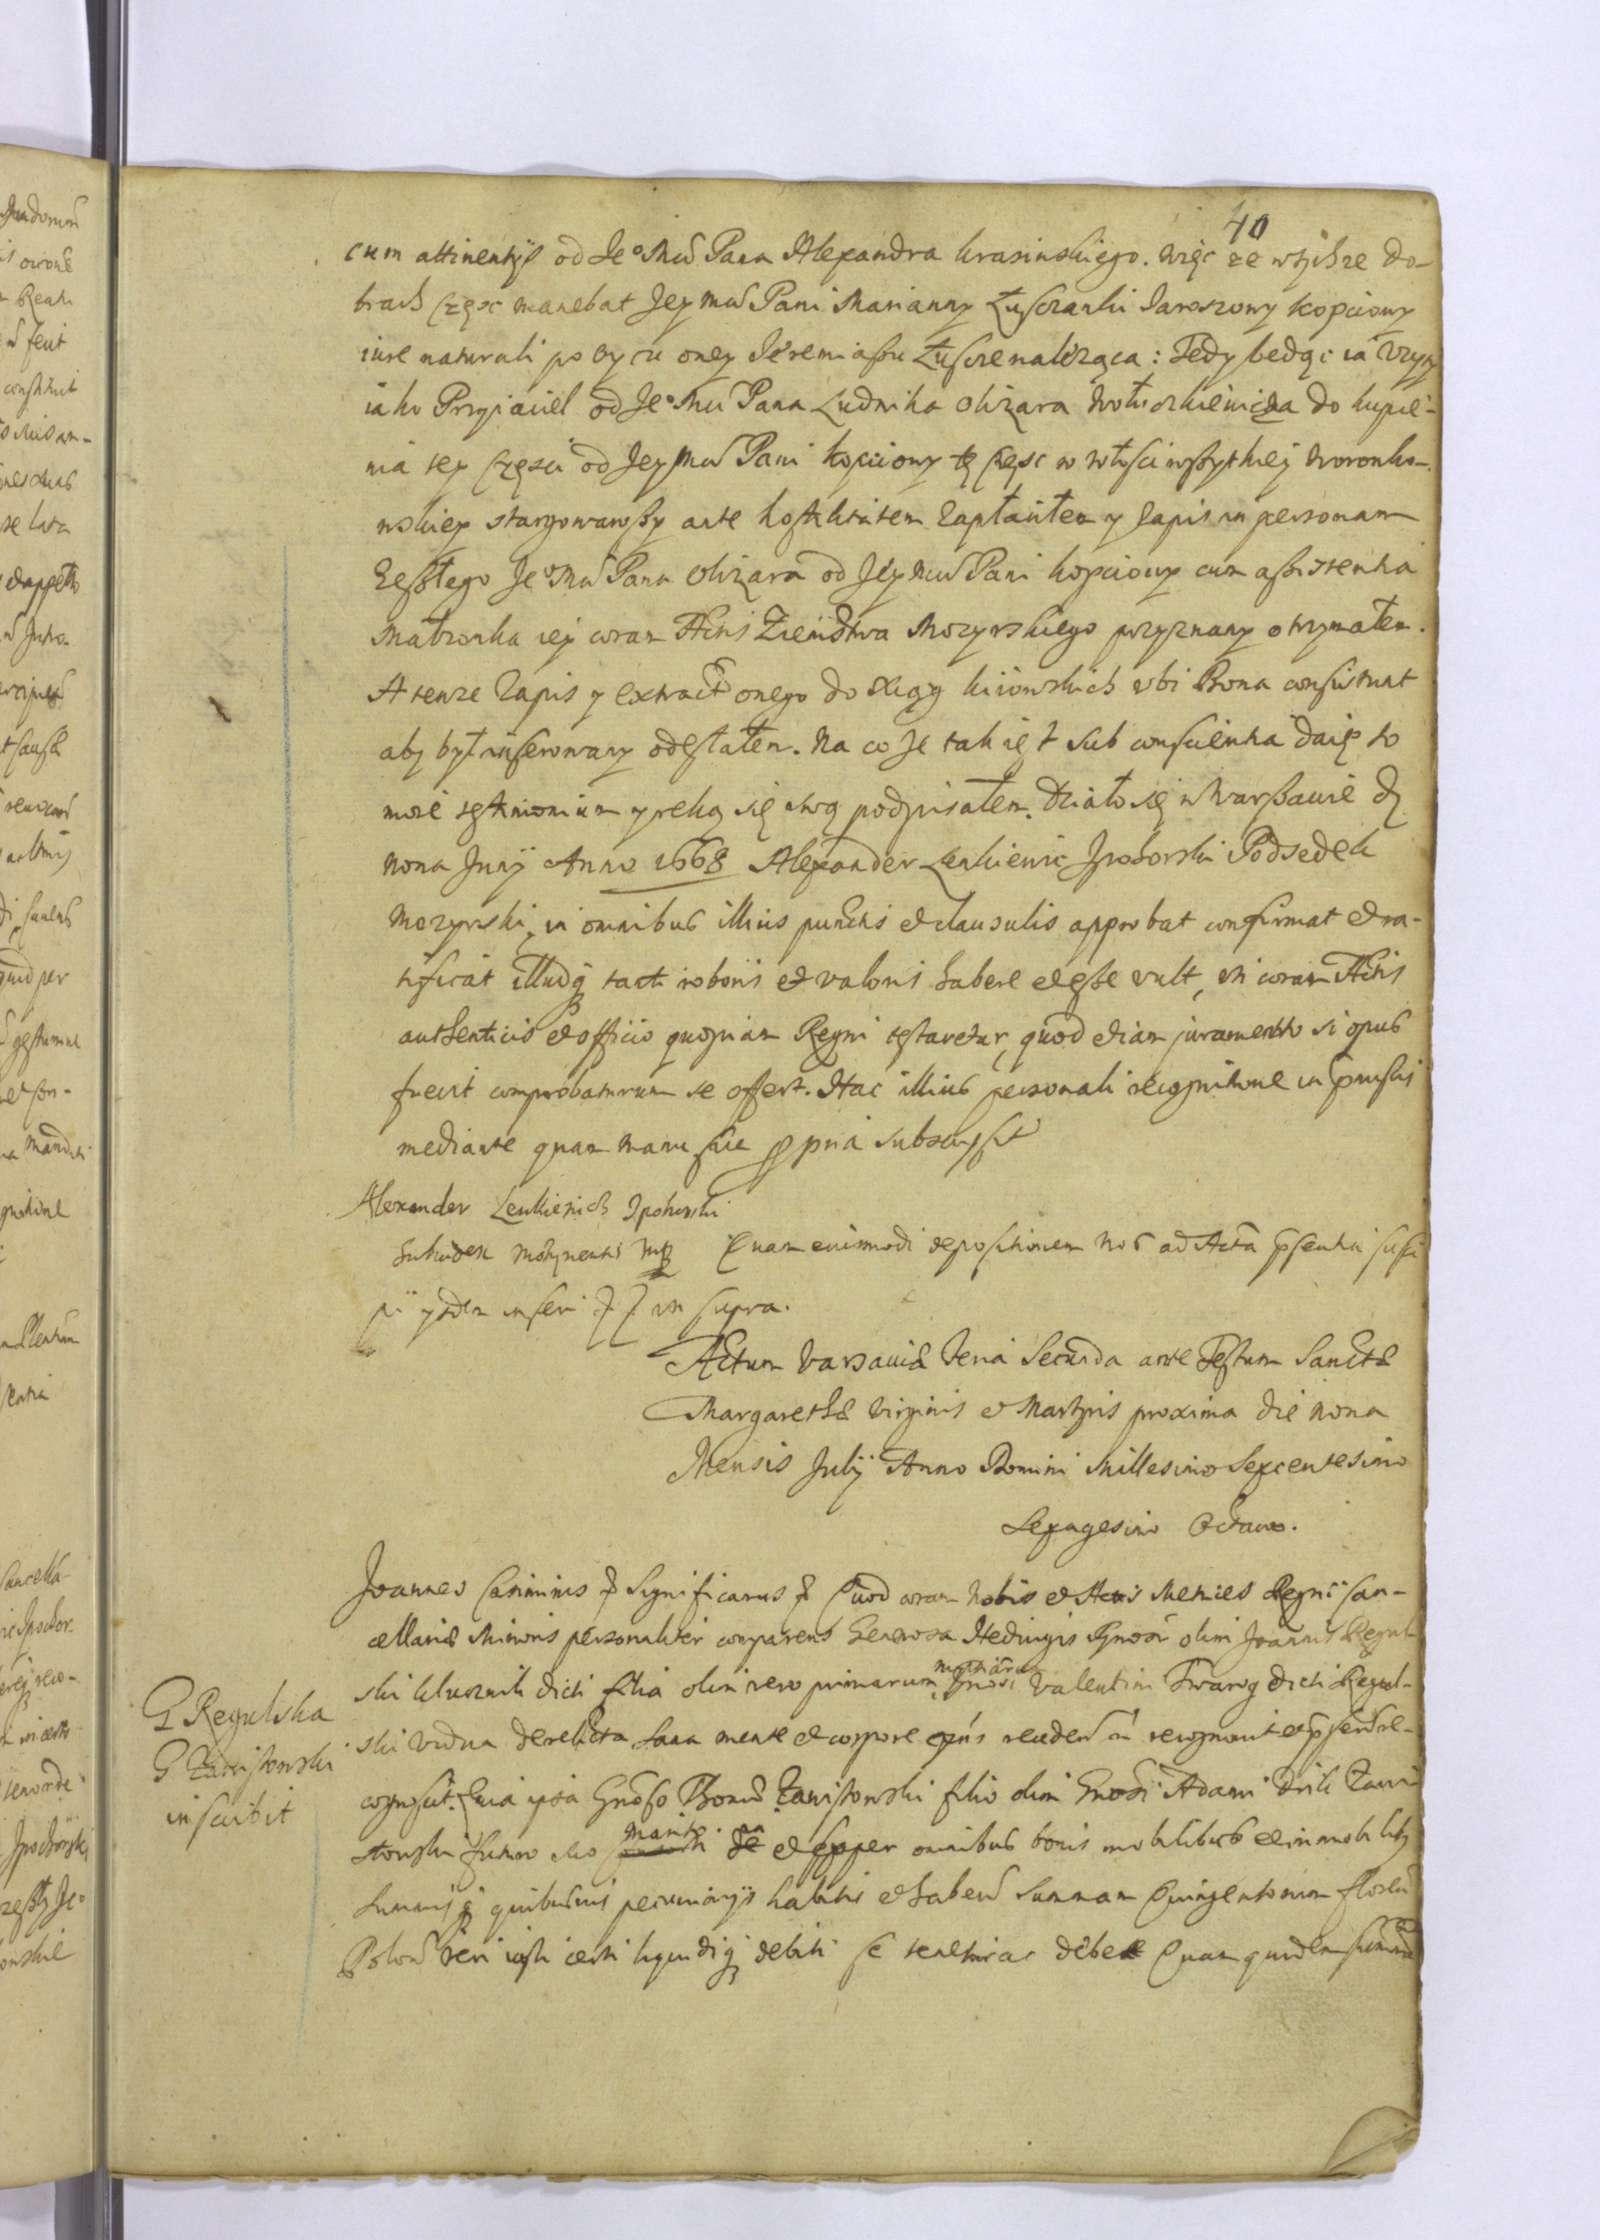 40
cum attinentijs od Je° Mci Pana Alexandra Krasinskiego. więc że w tychże Do-
brach częsc manebat Jey Mci Pani Marianny Łusczanki Jaroszowy Kopciowy
iure naturali po oycu oney Jeremiaszu Łusce należąca: Tedy będąc ia użyty
iako Przyiaciel od Je° Mci Pana Ludwika Olizara Wołczkiewicza do kupie-
nia tey części od Jey Mci Pani Kopciowy tę częsc w włości wszytkiey Woronko-
wskiey stargowawszy ante hostilitatem zapłaciłem y zapis in personam
zeszłego Je° Mci Pana Olizara od Jey Mci Pani Kopciowy cum assistentia
Małżonka iey coram Actis Ziemstwa Mozyrskiego przyznany otrzymałem.
A tenże zapis y extract onego do xiąg kiiowskich ubi Bona consistunt
aby był inserowany odesłałem. Na co że tak iest sub conscientia daię to
moie testimonium y ręką się swą podpisałem. Działo się w Warszawie d
nona Junij Anno 1668 Alexander Lenkiewic Ipohorski Podsędek
Mozyrski, in omnibus illius punctis et clausulis approbat confirmat et ra-
tificat illudq tacti roboris et valoris habere et esse vult, uti coram Actis
authenticis et officio quopiam Regni testaretur, quod etiam juramento si opus
fuerit comprobaturum se offert. Hac illius personali recognitione in prnsti
mediante quam manu sua ppria subscripsit
Alexander Lenkiewich Ipohorski
Subiudex Mozyrensis mp Quam eiusmodi depositionem nos ad Acta psentia susci
pi ysdem inseri f f uti supra.
Actum Varsaviæ Feria Secunda ante Festum Sanctæ
Margarethæ Virginis et Martyris proxima die nona
Mensis Julij Anno Domini Millesimo Sexcentesimo
Sexagesimo Octavo.
Joannes Casimirus f Significamus f Quod coram Nobis et Actis Metrices Regni Can-
cellariæ Minoris personaliter comparens Generosa Hedvigis Gnosi olim Joannis Regul-
ski Klusznik dicti filia olim vero primarum nuptiarum Gnosi Valentini Twarog dicti Regul-
ski vidua derelicta sana mente et corpore
cognoscit. Quia ipsa Gnoso Thomæ Zawistowski filio olim Gnosi Adami Zawi
stowski futuro suo marito in et super omnibus bonis mobilibus et immobilibz
Summisq quibusvis pecuniarijs habitis et habend Summam Quingentorum floren
Polon veri iusti certi liquidiq debiti se teneri ac debere Quam quidem summam
G Regulska
G Zawistowski
inscribit